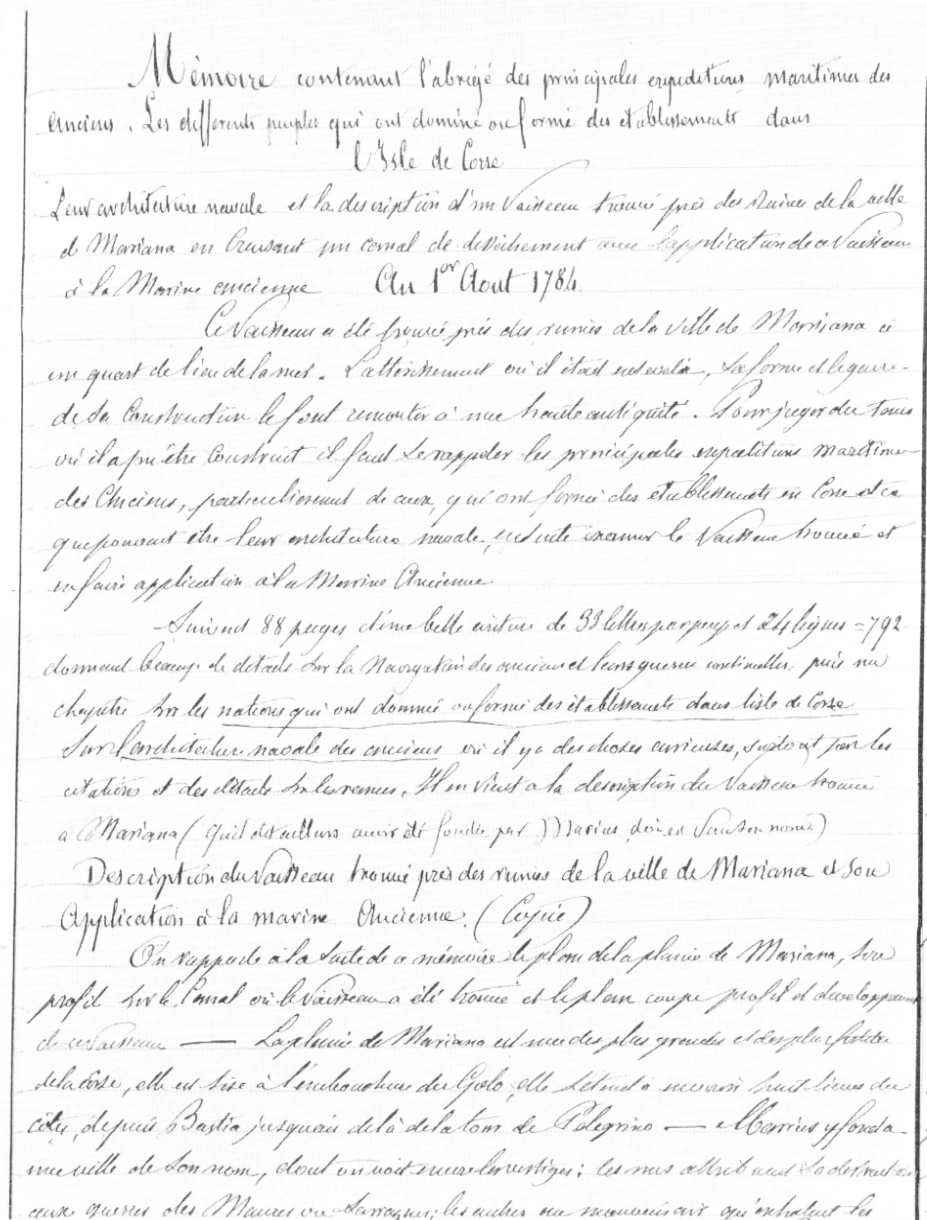 Mémoire contenant l'abrégé des principales expeditions maritimes des
anciens. Les differents peuples qui ont dominé ou formé des établissements dans
l'Isle de Corse
Leur architecture navale et la description d'un Vaisseau trouvé près des Ruines de la ville
de Mariana en Creusant un canal de dessèchement avec l'application de ce Vaisseau
à la Marine ancienne Au 1er Aout 1784.
Ce Vaisseau a été trouvé près des ruines de la ville de Mariana à
un quart de lieue de la mer. L'atterrissement où il était enseveli, sa forme et le genre
de sa Construction le font remonter à une haute antiquité. Pour juger du tems
où il a pu être Construit il faut se rappeler les principales expeditions maritimes
des Anciens, particulierement de ceux, qui ont formé des établissements en Corse et ce
que pouvait être leur architecture navale, ensuite examiner le Vaisseau trouvé et
en faire application à la Marine Ancienne
Suivent 88 pages d'une belle ecriture de 33 lettres par page et 24 lignes = 792
donnant beaucoup de détails sur la Navigation des anciens et leurs guerres continuelles, puis un
chapitre sur les nations qui ont dominé ou formé des établissements dans l'isle de Corse
Sur l'architecture navale des anciens où il y a des choses curieuses, surtout par les
citations et des détails sur les rames. Il en vient à la description du Vaisseau trouvé
à Mariana (qu'il dit d'ailleurs avoir été fondée par Marius, d'où est venu son nom)
Description du Vaisseau trouvé près des ruines de la ville de Mariana et son
Application à la marine Ancienne. (Copié)
On rapporte à la suite de ce mémoire le plan de la plaine de Mariana, son
profil sur le Canal où le Vaisseau a été trouvé et le plan coupe profil et developpement
de ce Vaisseau — La plaine de Mariana est une des plus grandes et des plus fertiles
de la Corse, elle est sise à l'embouchure du Golo, elle s'étend à environ huit lieues de
côtes, depuis Bastia jusqu'au delà de la tour de Pelegrino — Marius y fonda
une ville de son nom, dont on voit encore les vestiges; les uns attribuent sa destruction
aux guerres des Maures ou Sarrazins; les autres au mauvais air qu'exhalent les